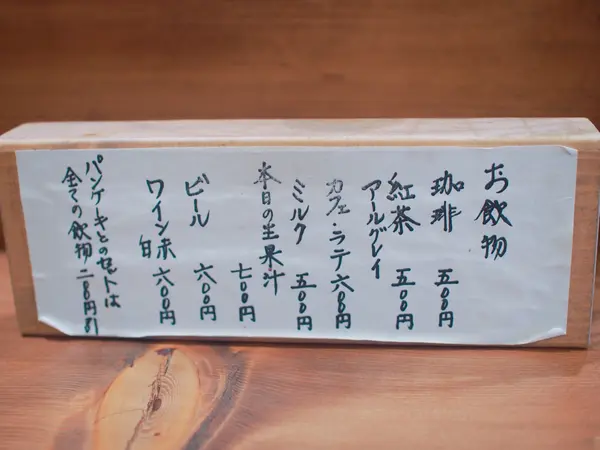 お飲物
珈琲 五〇〇円
紅茶 五〇〇円
アールグレイ
カフェ・ラテ 六〇〇円
ミルク 五〇〇円
本日の生果・汁 七〇〇円
ビール 六〇〇円
ワイン 赤 白 六〇〇円
パンケーキとのセットは
全ての飲物 二〇〇円引